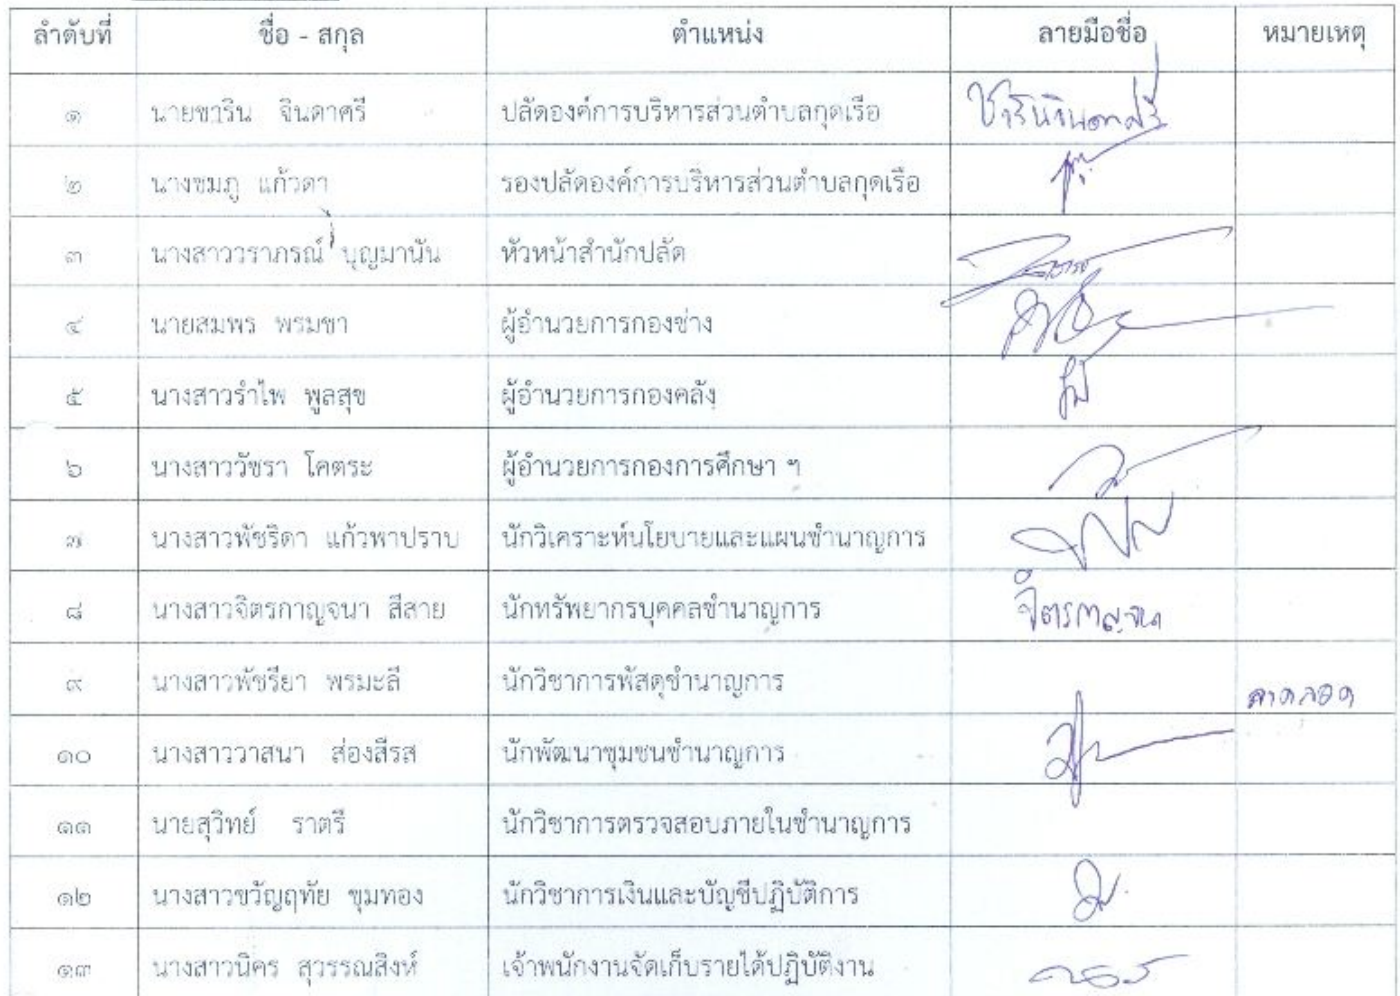 ลำดับที่ ชื่อ - สกุล ตำแหน่ง ลายมือชื่อ หมายเหตุ
๑ นายชาริน จินดาศรี ปลัดองค์การบริหารส่วนตำบลกุดเรือ ชารินจินดาศรี
๒ นางชมภู แก้วดา รองปลัดองค์การบริหารส่วนตำบลกุดเรือ
๓ นางสาววราภรณ์ บุญมานัน หัวหน้าสำนักปลัด
๔ นายสมพร พรมขา ผู้อำนวยการกองช่าง
๕ นางสาวรำไพ พูลสุข ผู้อำนวยการกองคลัง
๖ นางสาววัชรา โคตระ ผู้อำนวยการกองการศึกษา ฯ
๗ นางสาวพัชริดา แก้วพาปราบ นักวิเคราะห์นโยบายและแผนชำนาญการ
๘ นางสาวจิตรกาญจนา สีสาย นักทรัพยากรบุคคลชำนาญการ จิตรกาญจนา
๙ นางสาวพัชรียา พรมะลี นักวิชาการพัสดุชำนาญการ ลาคลอด
๑๐ นางสาววาสนา ส่องสีรส นักพัฒนาชุมชนชำนาญการ
๑๑ นายสุวิทย์ ราตรี นักวิชาการตรวจสอบภายในชำนาญการ
๑๒ นางสาวขวัญฤทัย ขุมทอง นักวิชาการเงินและบัญชีปฏิบัติการ
๑๓ นางสาวนิคร สุวรรณสิงห์ เจ้าพนักงานจัดเก็บรายได้ปฏิบัติงาน